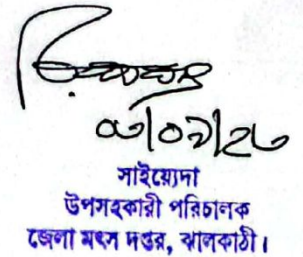 ০৩/০৯/২৩
সাইয়্যেদা
উপসহকারী পরিচালক
জেলা মৎস দপ্তর, ঝালকাঠী।